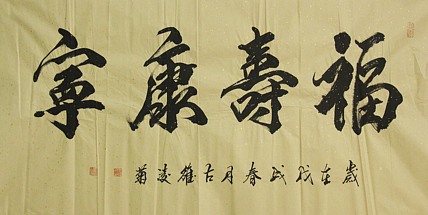 福壽康寧
歲在戊戌春月古雍凌菊